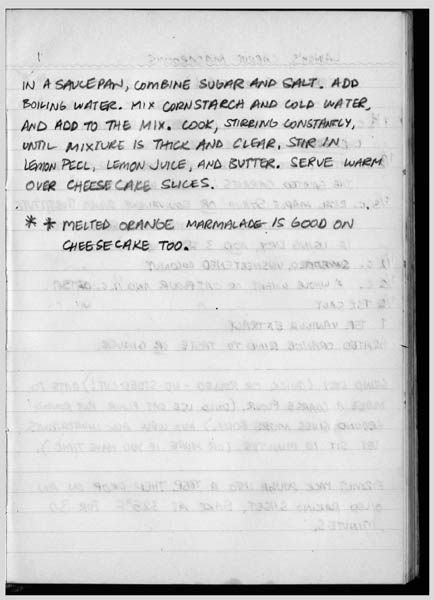 IN A SAUCEPAN, COMBINE SUGAR AND SALT. ADD
BOILING WATER. MIX CORNSTARCH AND COLD WATER,
AND ADD TO THE MIX. COOK, STIRRING CONSTANTLY,
UNTIL MIXTURE IS THICK AND CLEAR, STIR IN
LEMON PEEL, LEMON JUICE, AND BUTTER. SERVE WARM
OVER CHEESECAKE SLICES.
* * MELTED ORANGE MARMALADE IS GOOD ON
CHEESECAKE TOO.